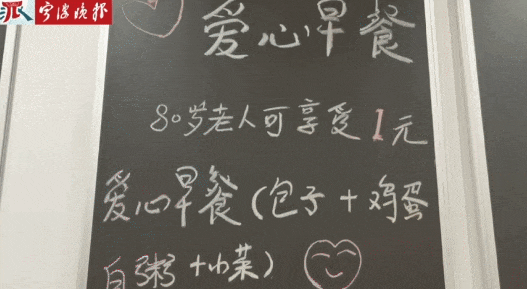 派 宁波晚报
爱心早餐
80岁老人可享受1元
爱心早餐(包子+鸡蛋
白粥+小菜)